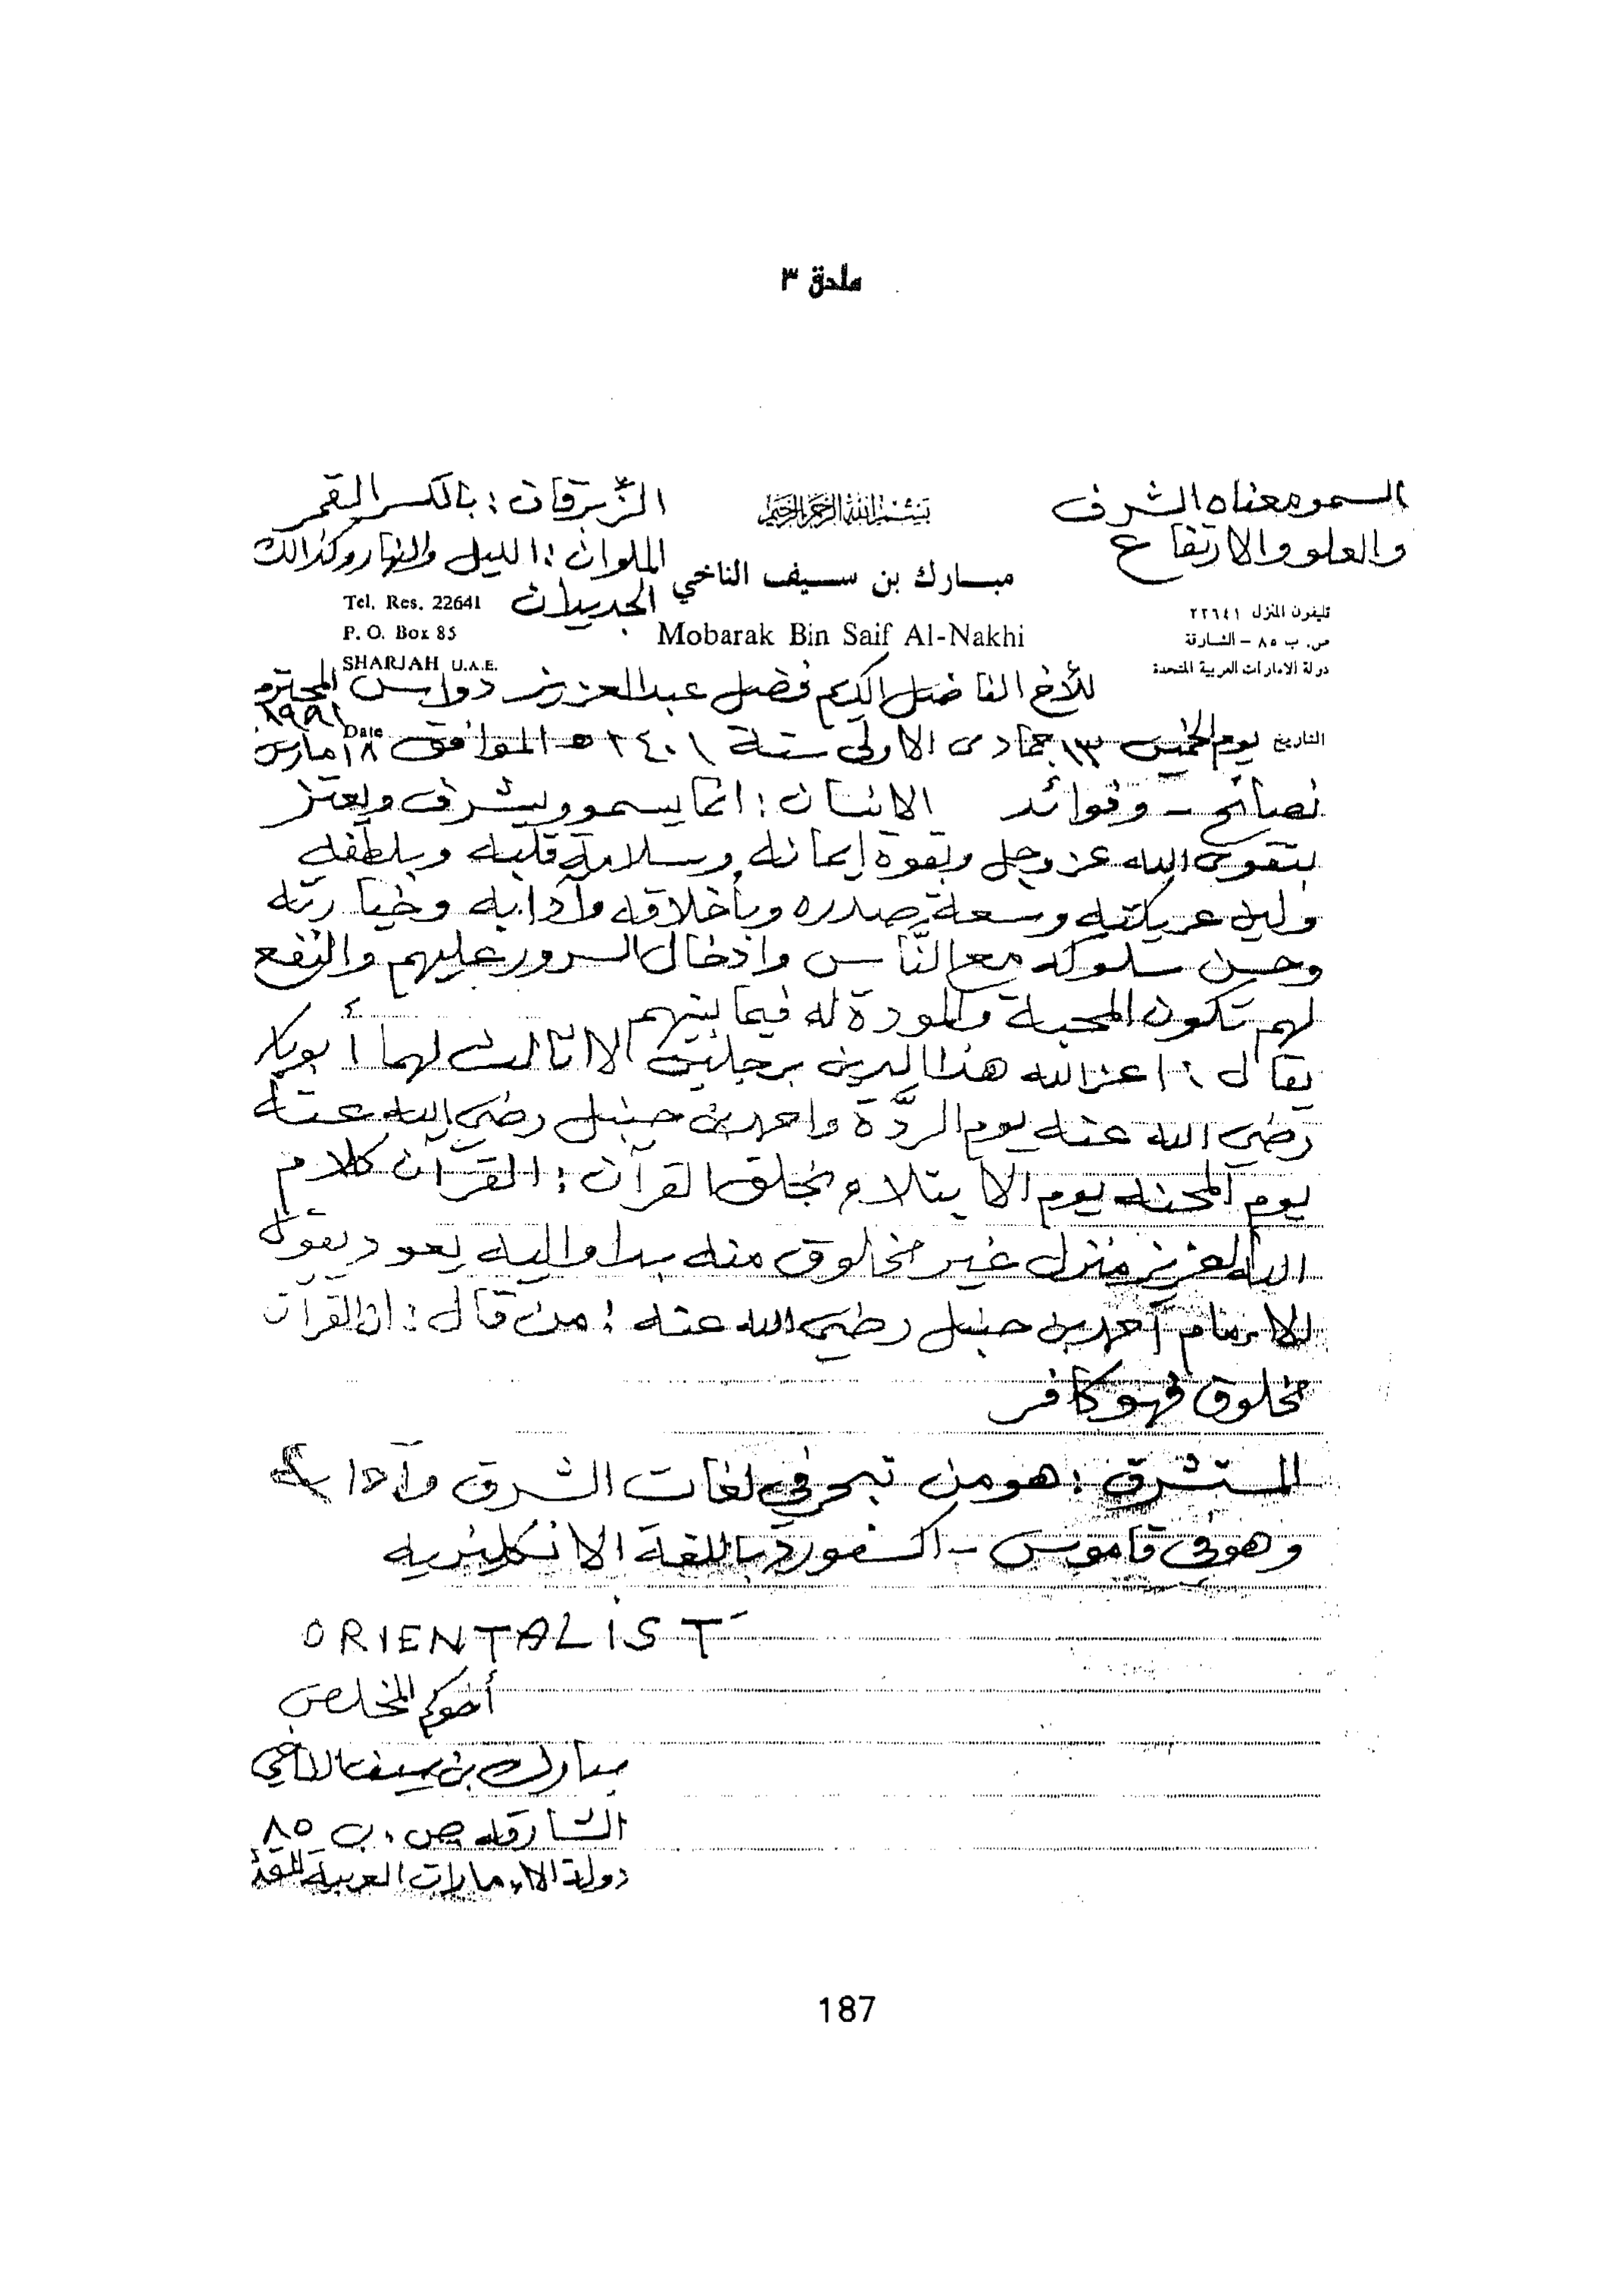 ملحق ٣
السمو معناه الشرف
والعلو والارتفاع
بسم الله الرحمن الرحيم
الزِّبرقان : بالكسر القمر
الملوان : الليل والنهار وكذالك
الجديدان
مبارك بن سيف الناخي
Mobarak Bin Saif Al-Nakhi
تليفون المنزل ٢٢٦٤١
ص. ب ٨٥ – الشارقة
دولة الامارات العربية المتحدة
Tel. Res. 22641
P. O. Box 85
SHARJAH U.A.E.
للأخ الفاضل الكريم فضل عبدالعزيز دواس المحترم
التاريخ يوم الخميس ١٣ جمادى الاولى سنة ١٤٠٢ هـ الموافق ١٨ مارس Date
نصائح – وفوائد الانسان : انما يسمو ويشرف ويعتز
بتقوى الله عز وجل وبقوة إيمانه وسلامة قلبه وبلطفه
ولين عريكته وسعة صدره وبأخلاقه وآدابه وخيا رته
وحسن سلوكه مع النَّاس وادخال السرور عليهم والنفع
لهم تكون المحبة والمودة له فيما بينهم
يقال : اعز الله هذا الدين برجلين لا ثالث لهما أبو بكر
رضي الله عنه يوم الردَّة واحمد بن حنبل رضي الله عنه
يوم المحنه يوم الابتلاء بخلق القرآن : القرآن كلام
الله العزيز منزل غير مخلوق منه بدا واليه يعود يقول
الامام أحمد بن حنبل رضي الله عنه : من قال : ان القرآن
مخلوق فهو كافر
المستشرق : هو من تبحر في لغات الشرق وآدابه
وهو في قاموس – اكسفورد باللغة الانكليزيه
ORIENTALIST
أخوكم المخلص
مبارك بن سيف الناخي
الشارقه ص . ب ٨٥
دولة الامارات العربية المتحدة
187